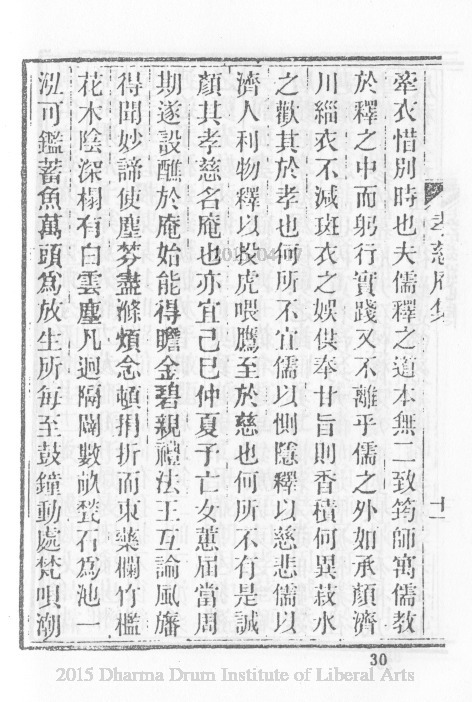 牽衣惜別時也夫儒釋之道本無二致筠師寓儒教
於釋之中而躬行實踐又不離乎儒之外如承顏濟
川緇衣不減斑衣之娛供奉甘旨則香積何異菽水
之歡其於孝也何所不宜儒以惻隱釋以慈悲儒以
濟人利物釋以投虎喂鷹至於慈也何所不有是誠
顏其孝慈名庵也亦宜己巳仲夏予亡女蕙屆當周
期遂設醮於庵始能得瞻金碧親禮法王互論風旛
得聞妙諦使塵棼盡滌煩念頓捐折而東藥欄竹檻
花木陰深榻有白雲塵凡迥隔闢數畝甃石為池一
泓可鑑蓄魚萬頭為放生所每至鼓鐘動處梵唄潮
孝慈庵集
十一
30
2015 Dharma Drum Institute of Liberal Arts